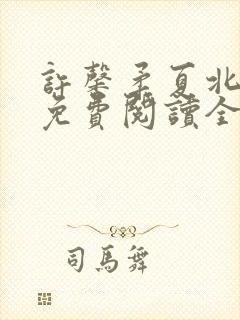 許馨矛夏北
免費閱讀全
司馬舞